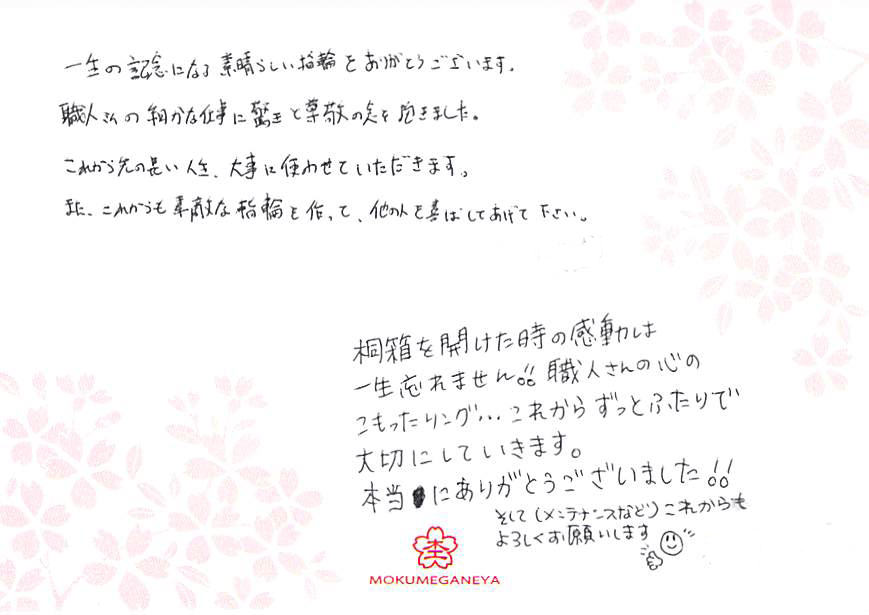 一生の記念になる素晴らしい指輪をありがとうございます。
職人さんの細かな仕事に驚きと尊敬の念を抱きました。
これから先の長い人生、大事に使わせていただきます。
また、これからも素敵な指輪を作って、他の人を喜ばしてあげて下さい。
桐箱を開けた時の感動は
一生忘れません!! 職人さんの心の
こもったリング... これからずっとふたりで
大切にしていきます。
本当にありがとうございました!!
そして(メンテナンスなど)これからも
よろしくお願いします
MOKUMEGANEYA